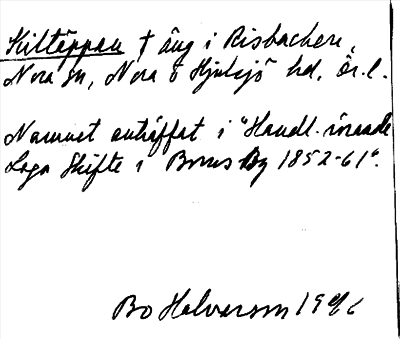 Kiltäppan † äng i Risbacken,
Nora sn, Nora o Hjulsjö hd, Ör. l.
Namnet anträffat i "Handl. rörande
Laga Skifte i Borns By 1852-61".
Bo Halvarson 1946